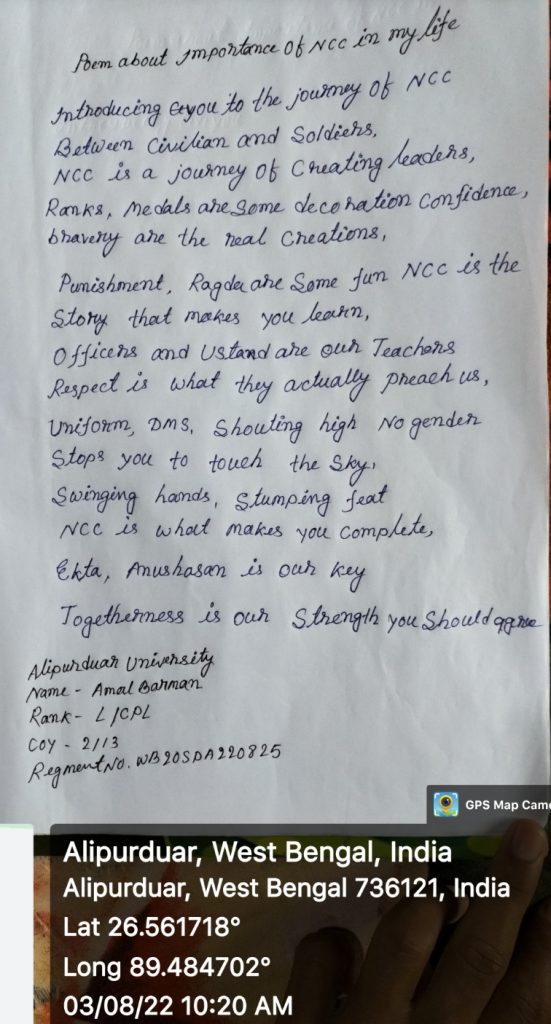 Poem about importance of NCC in my life
Introducing you to the journey of NCC
Between Civilian and Soldiers,
NCC is a journey of Creating leaders,
Ranks, Medals are Some decoration Confidence,
bravery are the real Creations,
Punishment, Ragda are Some fun NCC is the
Story that makes you learn,
Officers and Ustand are our Teachers
Respect is what they actually preach us,
Uniform, DMS, Shouting high No gender
Stops you to touch the Sky,
Swinging hands, Stumping feat
NCC is what makes you Complete,
Ekta, Anushasan is our key
Togetherness is our Strength you Should agree
Alipurduar University
Name - Amal Barman
Rank - L/CPL
COY - 2/13
Regment No. WB20SDA220825
GPS Map Came
Alipurduar, West Bengal, India
Alipurduar, West Bengal 736121, India
Lat 26.561718°
Long 89.484702°
03/08/22 10:20 AM